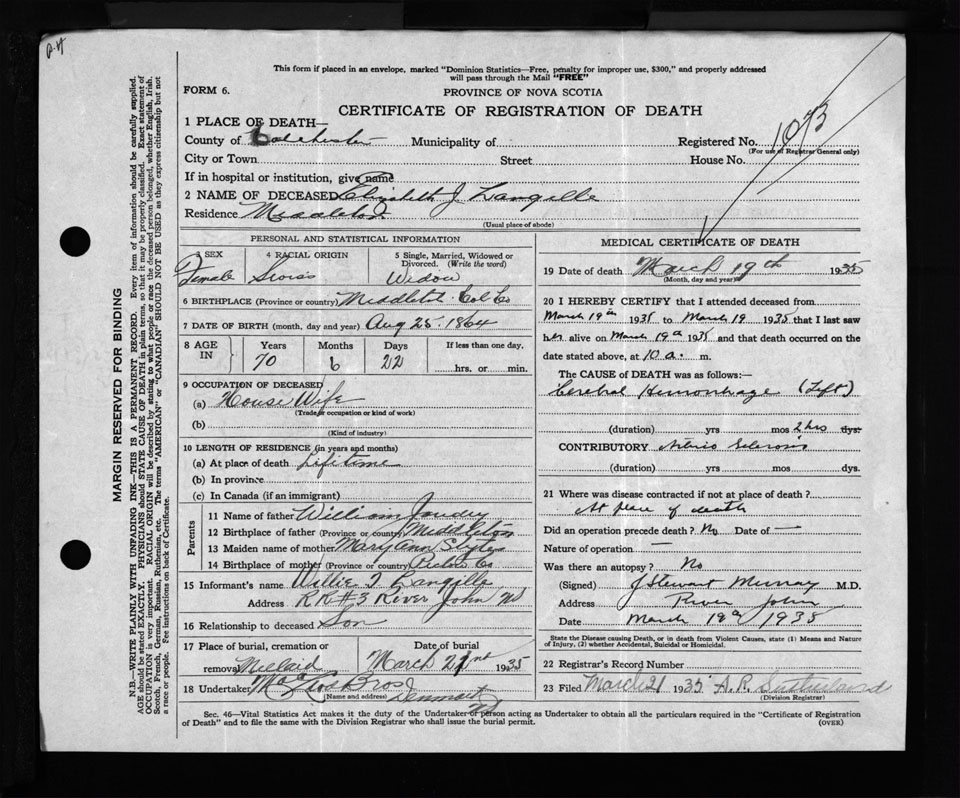 This form if placed in an envelope, marked "Dominion Statistics—Free, penalty for improper use, $300," and properly addressed
will pass through the Mail "FREE"
FORM 6.
PROVINCE OF NOVA SCOTIA
CERTIFICATE OF REGISTRATION OF DEATH
1 PLACE OF DEATH—
County of Colchester Municipality of Registered No. 1073
(For use of Registrar General only)
City or Town Street House No.
If in hospital or institution, give name
2 NAME OF DECEASED Elizabeth J Langille
Residence Middleton
(Usual place of abode)
PERSONAL AND STATISTICAL INFORMATION
3 SEX 4 RACIAL ORIGIN 5 Single, Married, Widowed or
Divorced. (Write the word)
Female Swiss Widow
6 BIRTHPLACE (Province or country) Middleton Col Co
7 DATE OF BIRTH (month, day and year) Aug 25. 1864
8 AGE IN Years Months Days If less than one day,
70 6 22 hrs. or min.
9 OCCUPATION OF DECEASED
(a) House Wife
(Trade, occupation or kind of work)
(b)
(Kind of industry)
10 LENGTH OF RESIDENCE (in years and months)
(a) At place of death Lifetime
(b) In province
(c) In Canada (if an immigrant)
Parents
11 Name of father William Joudry
12 Birthplace of father (Province or country) Middleton
13 Maiden name of mother Mary Ann
14 Birthplace of mother (Province or country) Pictou Co
15 Informant's name Willie T Langille
Address RR#3 River John NS
16 Relationship to deceased Son
17 Place of burial, cremation or Date of burial
removal March 21st 1935
18 Undertaker Bros Denmark NS
(Name and address)
MEDICAL CERTIFICATE OF DEATH
19 Date of death March 19th 1935
(Month, day and year)
20 I HEREBY CERTIFY that I attended deceased from
March 19th 1935 to March 19 1935 that I last saw
her alive on March 19th 1935 and that death occurred on the
date stated above, at 10 a. m.
The CAUSE OF DEATH was as follows:—
Cerebral Hemorrhage (Left)
(duration) yrs mos 2 hrs dys.
CONTRIBUTORY Arterio Sclerosis
(duration) yrs mos dys.
21 Where was disease contracted if not at place of death?
At place of death
Did an operation precede death? No Date of —
Nature of operation —
Was there an autopsy? No
(Signed) J Stewart Murray M.D.
Address River John
Date March 19th 1935
State the Disease causing Death, or in death from Violent Causes, state (1) Means and Nature
of Injury, (2) whether Accidental, Suicidal or Homicidal.
22 Registrar's Record Number
23 Filed March 21 1935 A. R. Sutherland
(Division Registrar)
Sec. 46—Vital Statistics Act makes it the duty of the Undertaker or person acting as Undertaker to obtain all the particulars required in the "Certificate of Registration
of Death" and to file the same with the Division Registrar who shall issue the burial permit.
(OVER)
MARGIN RESERVED FOR BINDING
N.B.—WRITE PLAINLY WITH UNFADING INK—THIS IS A PERMANENT RECORD. Every item of information should be carefully supplied.
AGE should be stated EXACTLY. PHYSICIANS should STATE CAUSE OF DEATH in plain terms, so that it may be properly classified. Exact statement of
OCCUPATION is very important. RACIAL ORIGIN will be described by stating to what people or race the deceased person belonged, whether English, Irish,
Scotch, French, German, Russian, Ruthenian, etc. The terms "AMERICAN" or "CANADIAN" SHOULD NOT BE USED as they express citizenship but not
a race or people. Fee instructions on back of Certificate.